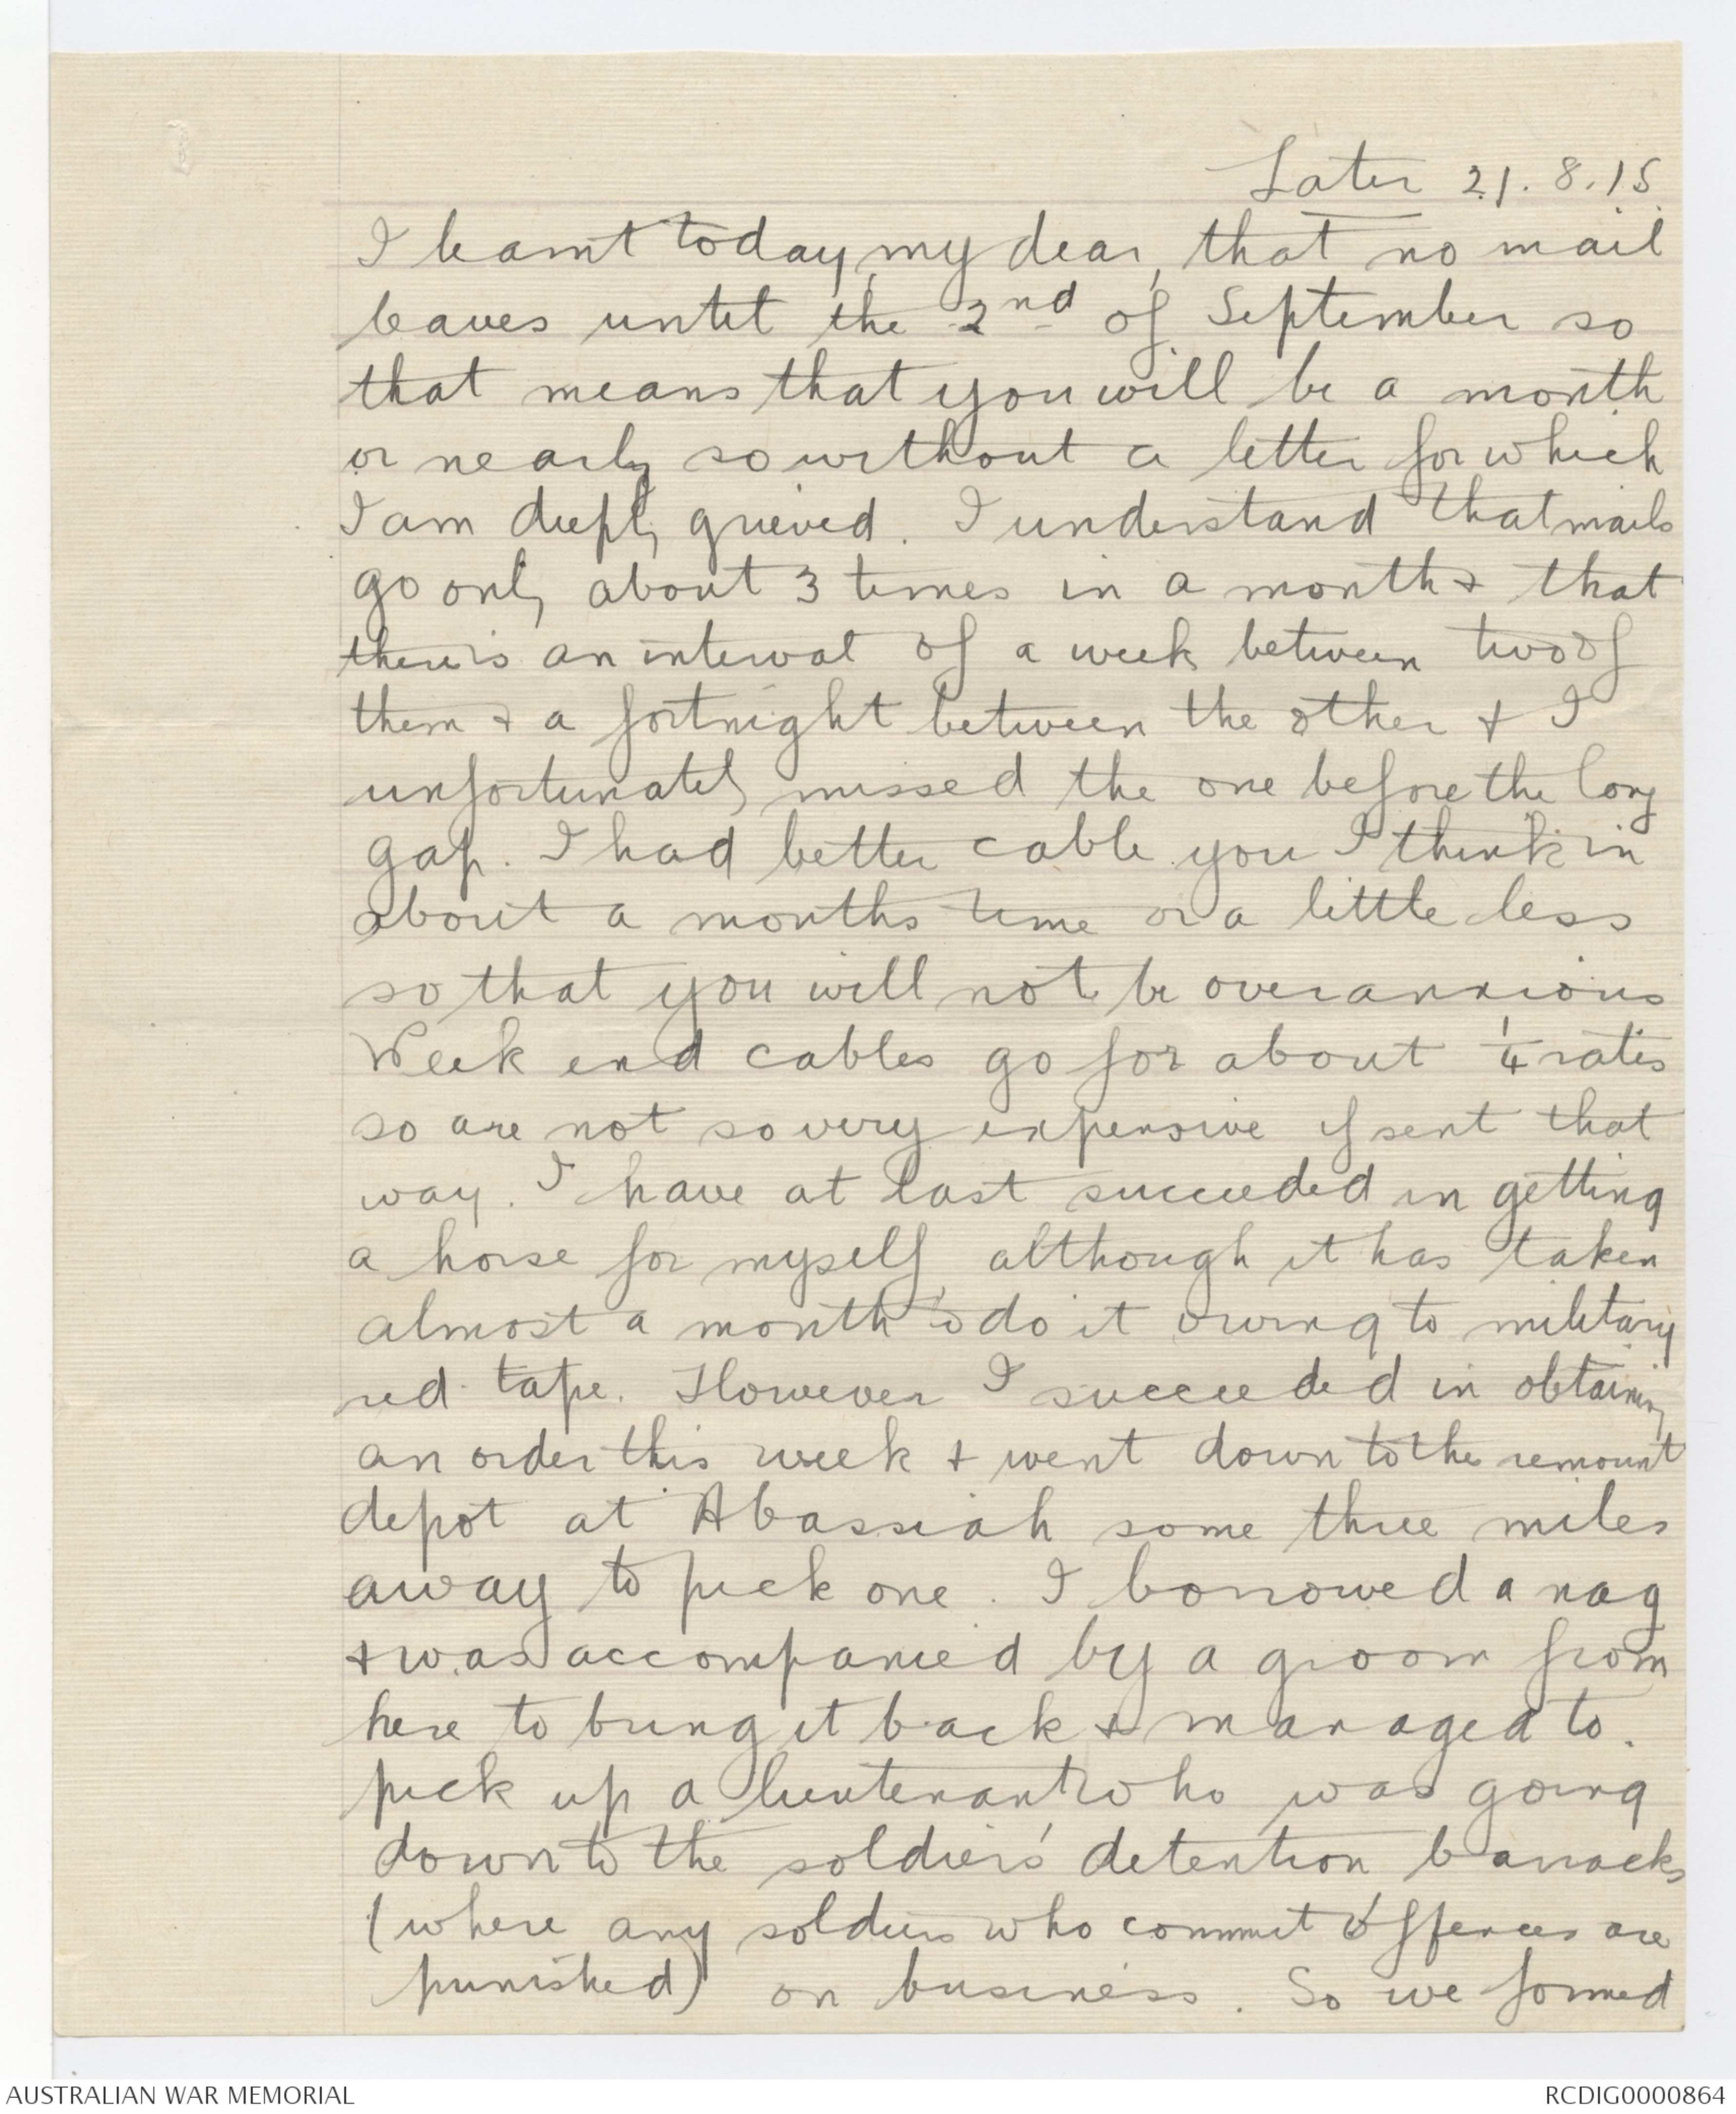 Later 21.8.15
I learnt today, my dear, that no mail
leaves until the 2nd of September so
that means that you will be a month
or nearly so without a letter for which
I am deeply grieved. I understand that mails
go only about 3 times in a month & that
there is an interval of a week between two of
them & a fortnight between the other & I
unfortunately missed the one before the long
gap. I had better cable you I think in
about a months time or a little less
so that you will not be over anxious
Week end cables go for about 1/4 rates
so are not so very expensive if sent that
way. I have at last succeeded in getting
a horse for myself, although it has taken
almost a month to do it owing to military
red tape. However I succeeded in obtaining
an order this week & went down to the remount
depot at Abassiah some three miles
away to pick one. I borrowed a nag
& was accompanied by a groom from
here to bring it back & managed to
pick up a lieutenant who was going
down to the soldiers' detention barracks
(where any soldiers who commit offences are
punished) on business. So we formed
AUSTRALIAN WAR MEMORIAL
RCDIG0000864